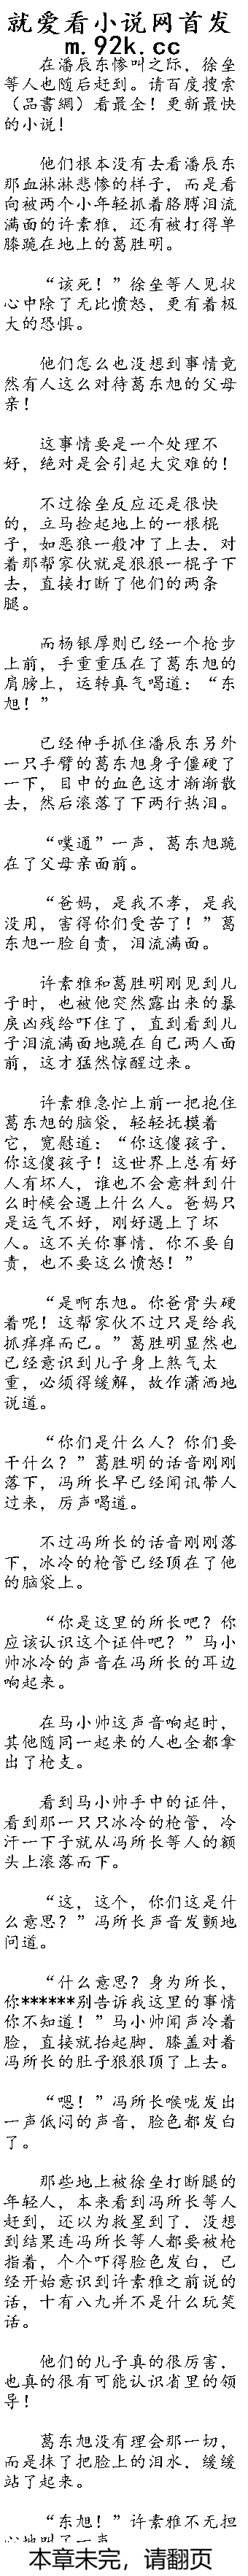 就爱看小说网首发
m.92k.cc
在潘辰东惨叫之际，徐垒
等人也随后赶到。请百度搜索
（品書網）看最全！更新最快
的小说！
他们根本没有去看潘辰东
那血淋淋悲惨的样子，而是看
向被两个小年轻抓着胳膊泪流
满面的许素雅，还有被打得单
膝跪在地上的葛胜明。
“该死！”徐垒等人见状
心中除了无比愤怒，更有着极
大的恐惧。
他们怎么也没想到事情竟
然有人这么对待葛东旭的父母
亲！
这事情要是一个处理不
好，绝对是会引起大灾难的！
不过徐垒反应还是很快
的，立马捡起地上的一根棍
子，如恶狼一般冲了上去，对
着那帮家伙就是狠狠一棍子下
去，直接打断了他们的两条
腿。
而杨银厚则已经一个抢步
上前，手重重压在了葛东旭的
肩膀上，运转真气喝道：“东
旭！”
已经伸手抓住潘辰东另外
一只手臂的葛东旭身子僵硬了
一下，目中的血色这才渐渐散
去，然后滚落了下两行热泪。
“噗通”一声，葛东旭跪
在了父母亲面前。
“爸妈，是我不孝，是我
没用，害得你们受苦了！”葛
东旭一脸自责，泪流满面。
许素雅和葛胜明刚见到儿
子时，也被他突然露出来的暴
戾凶残给吓住了，直到看到儿
子泪流满面地跪在自己两人面
前，这才猛然惊醒过来。
许素雅急忙上前一把抱住
葛东旭的脑袋，轻轻抚摸着
它，宽慰道：“你这傻孩子，
你这傻孩子！这世界上总有好
人有坏人，谁也不会意料到什
么时候会遇上什么人。爸妈只
是运气不好，刚好遇上了坏
人。这不关你事情，你不要自
责，也不要这么愤怒！”
“是啊东旭。你爸骨头硬
着呢！这帮家伙不过只是给我
抓痒痒而已。”葛胜明显然也
已经意识到儿子身上煞气太
重，必须得缓解，故作潇洒地
说道。
“你们是什么人？你们要
干什么？”葛胜明的话音刚刚
落下，冯所长早已经闻讯带人
过来，厉声喝道。
不过冯所长的话音刚刚落
下，冰冷的枪管已经顶在了他
的脑袋上。
“你是这里的所长吧？你
应该认识这个证件吧？”马小
帅冰冷的声音在冯所长的耳边
响起来。
在马小帅这声音响起时，
其他随同一起来的人也全都拿
出了枪支。
看到马小帅手中的证件，
看到那一只只冰冷的枪管，冷
汗一下子就从冯所长等人的额
头上滚落而下。
“这，这个，你们这是什
么意思？”冯所长声音发颤地
问道。
“什么意思？身为所长，
你******别告诉我这里的事情
你不知道！”马小帅闻声冷着
脸，直接就抬起脚，膝盖对着
冯所长的肚子狠狠顶了上去。
“嗯！”冯所长喉咙发出
一声低闷的声音，脸色都发白
了。
那些地上被徐垒打断腿的
年轻人，本来看到冯所长等人
赶到，还以为救星到了，没想
到结果连冯所长等人都要被枪
指着，个个吓得脸色发白，已
经开始意识到许素雅之前说的
话，十有八九并不是什么玩笑
话。
他们的儿子真的很厉害，
也真的很有可能认识省里的领
导！
葛东旭没有理会那一切，
而是抹了把脸上的泪水，缓缓
站了起来。
“东旭！”许素雅不无担
心地叫了一声
本章未完，请翻页